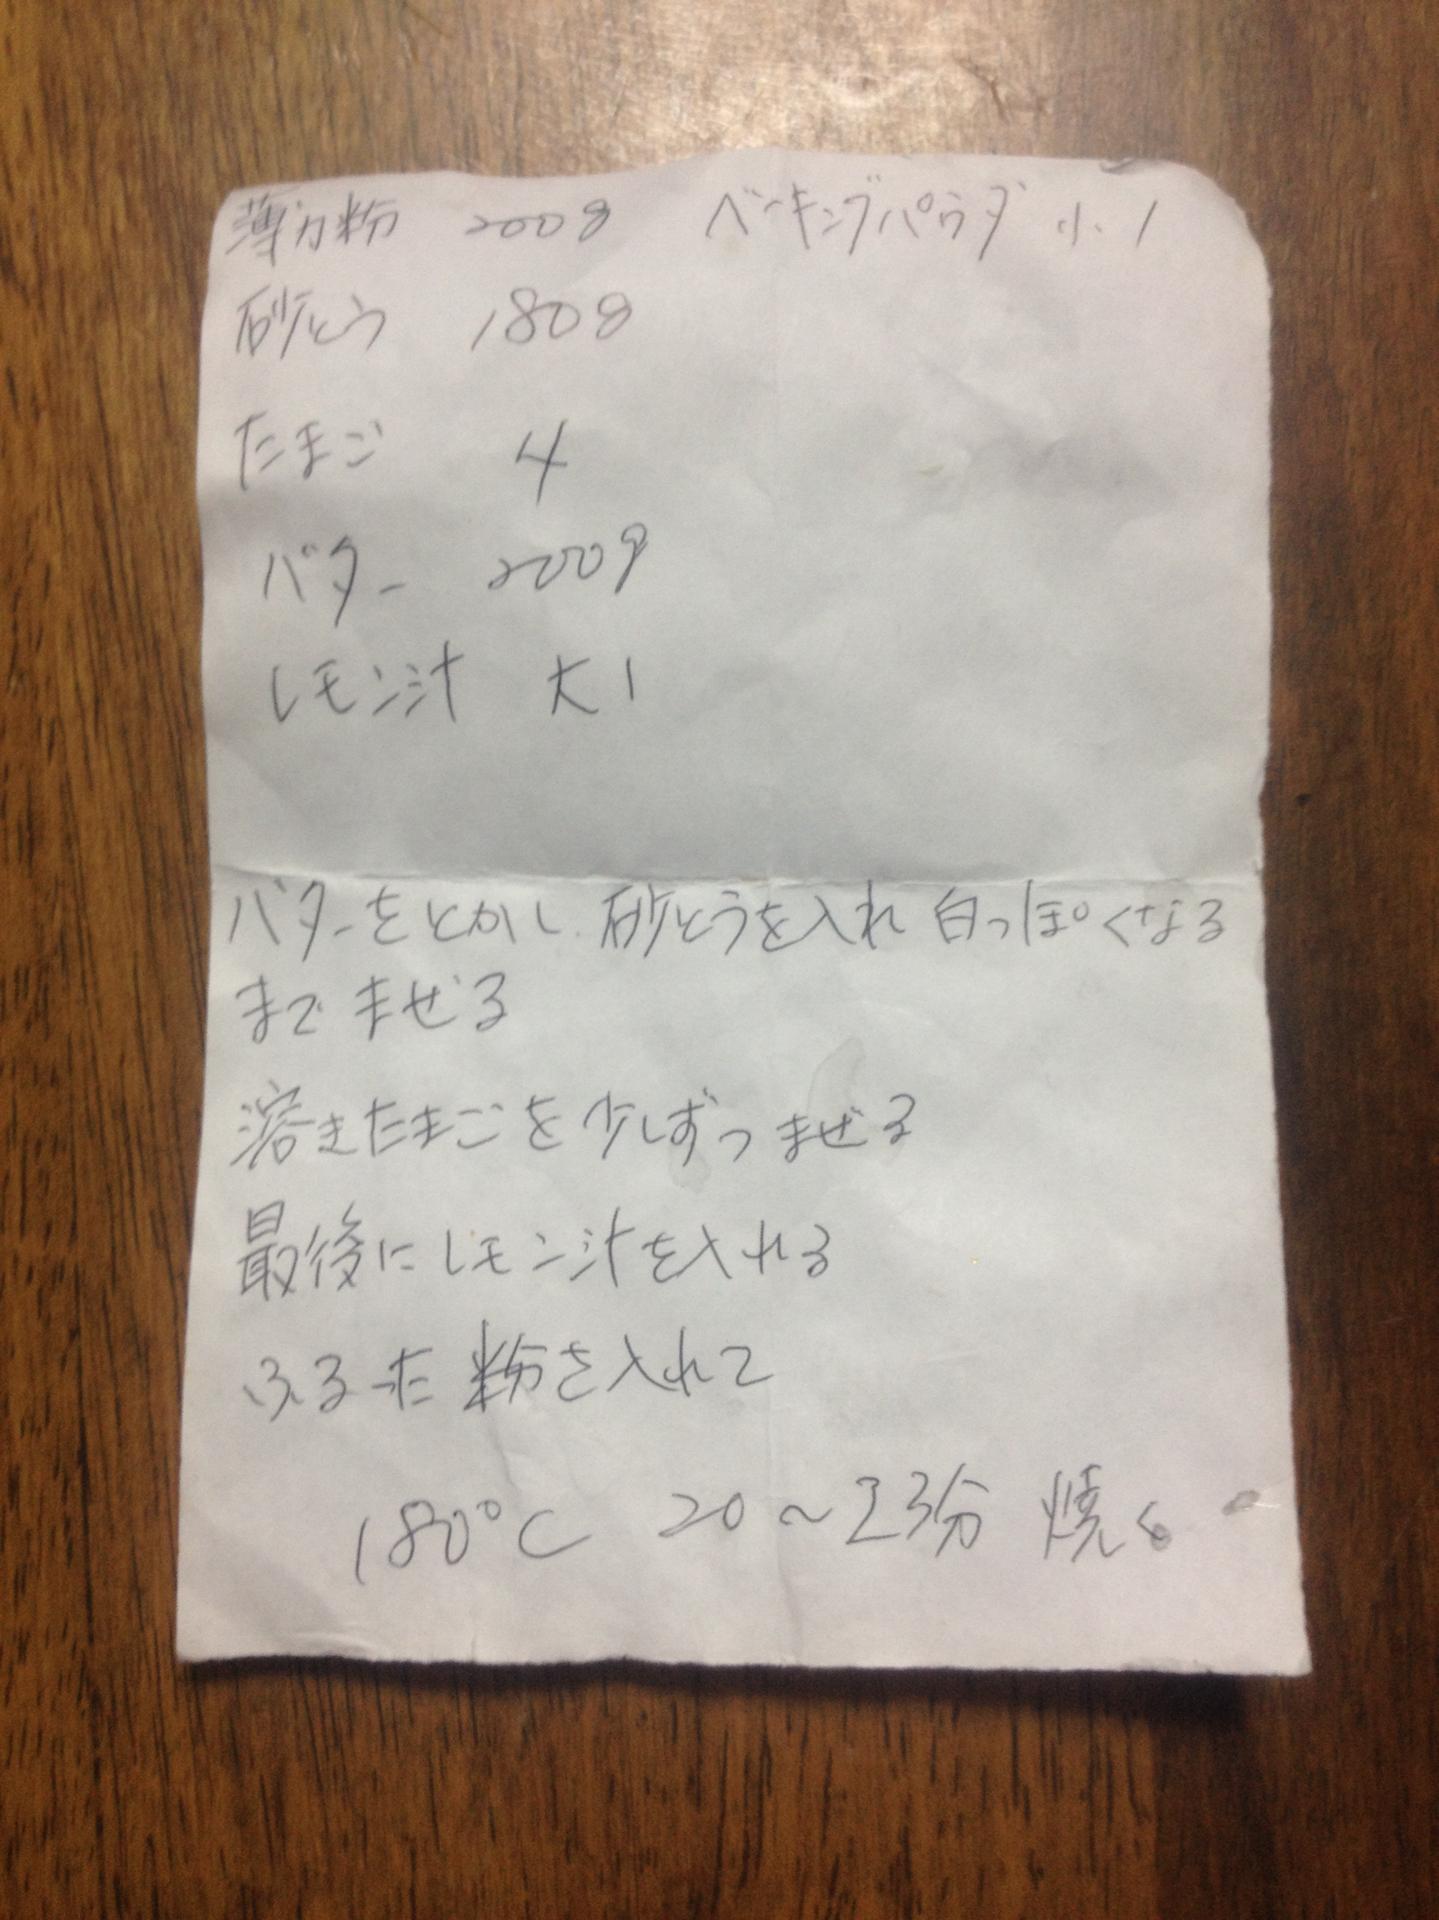 薄力粉 200g ベーキングパウダ 小1
砂とう 180g
たまご 4
バター 200g
レモン汁 大1
バターをとかし 砂とうを入れ 白っぽくなる
まで ませる
溶きたまごを少しずつ まぜる
最後にレモン汁を入れる
ふるった 粉を入れて
180℃ 20〜23分 焼く